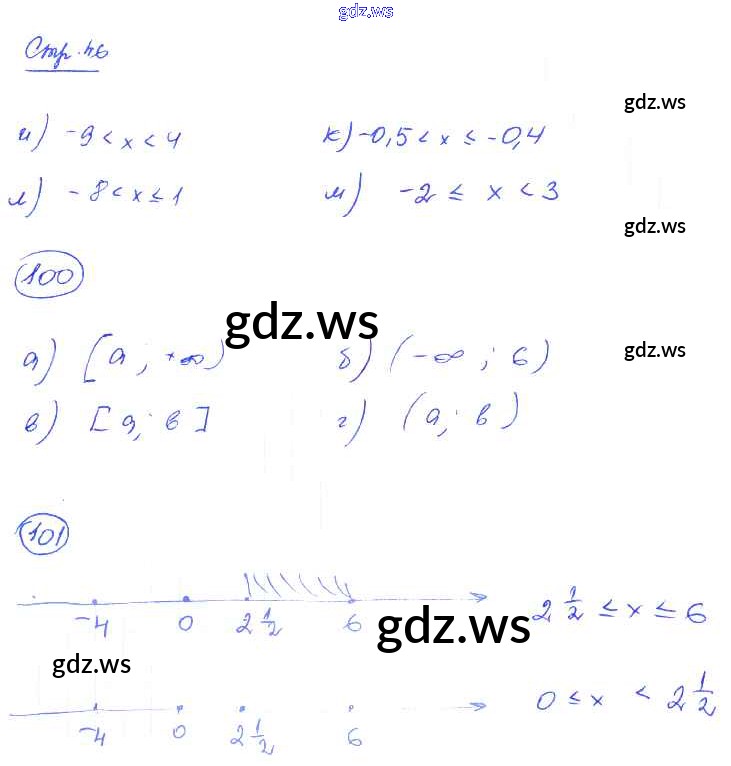 gdz.ws
Стр. 46
gdz.ws
и) -9 < x < 4 к) -0,5 < x ≤ -0,4
л) -8 < x ≤ 1 м) -2 ≤ x < 3
gdz.ws
100
gdz.ws
а) [a; +∞) б) (-∞; b) gdz.ws
в) [a; b] г) (a; b)
101
-4 0 2 1/2 6 2 1/2 ≤ x ≤ 6
gdz.ws
gdz.ws
0 ≤ x < 2 1/2
-4 0 2 1/2 6